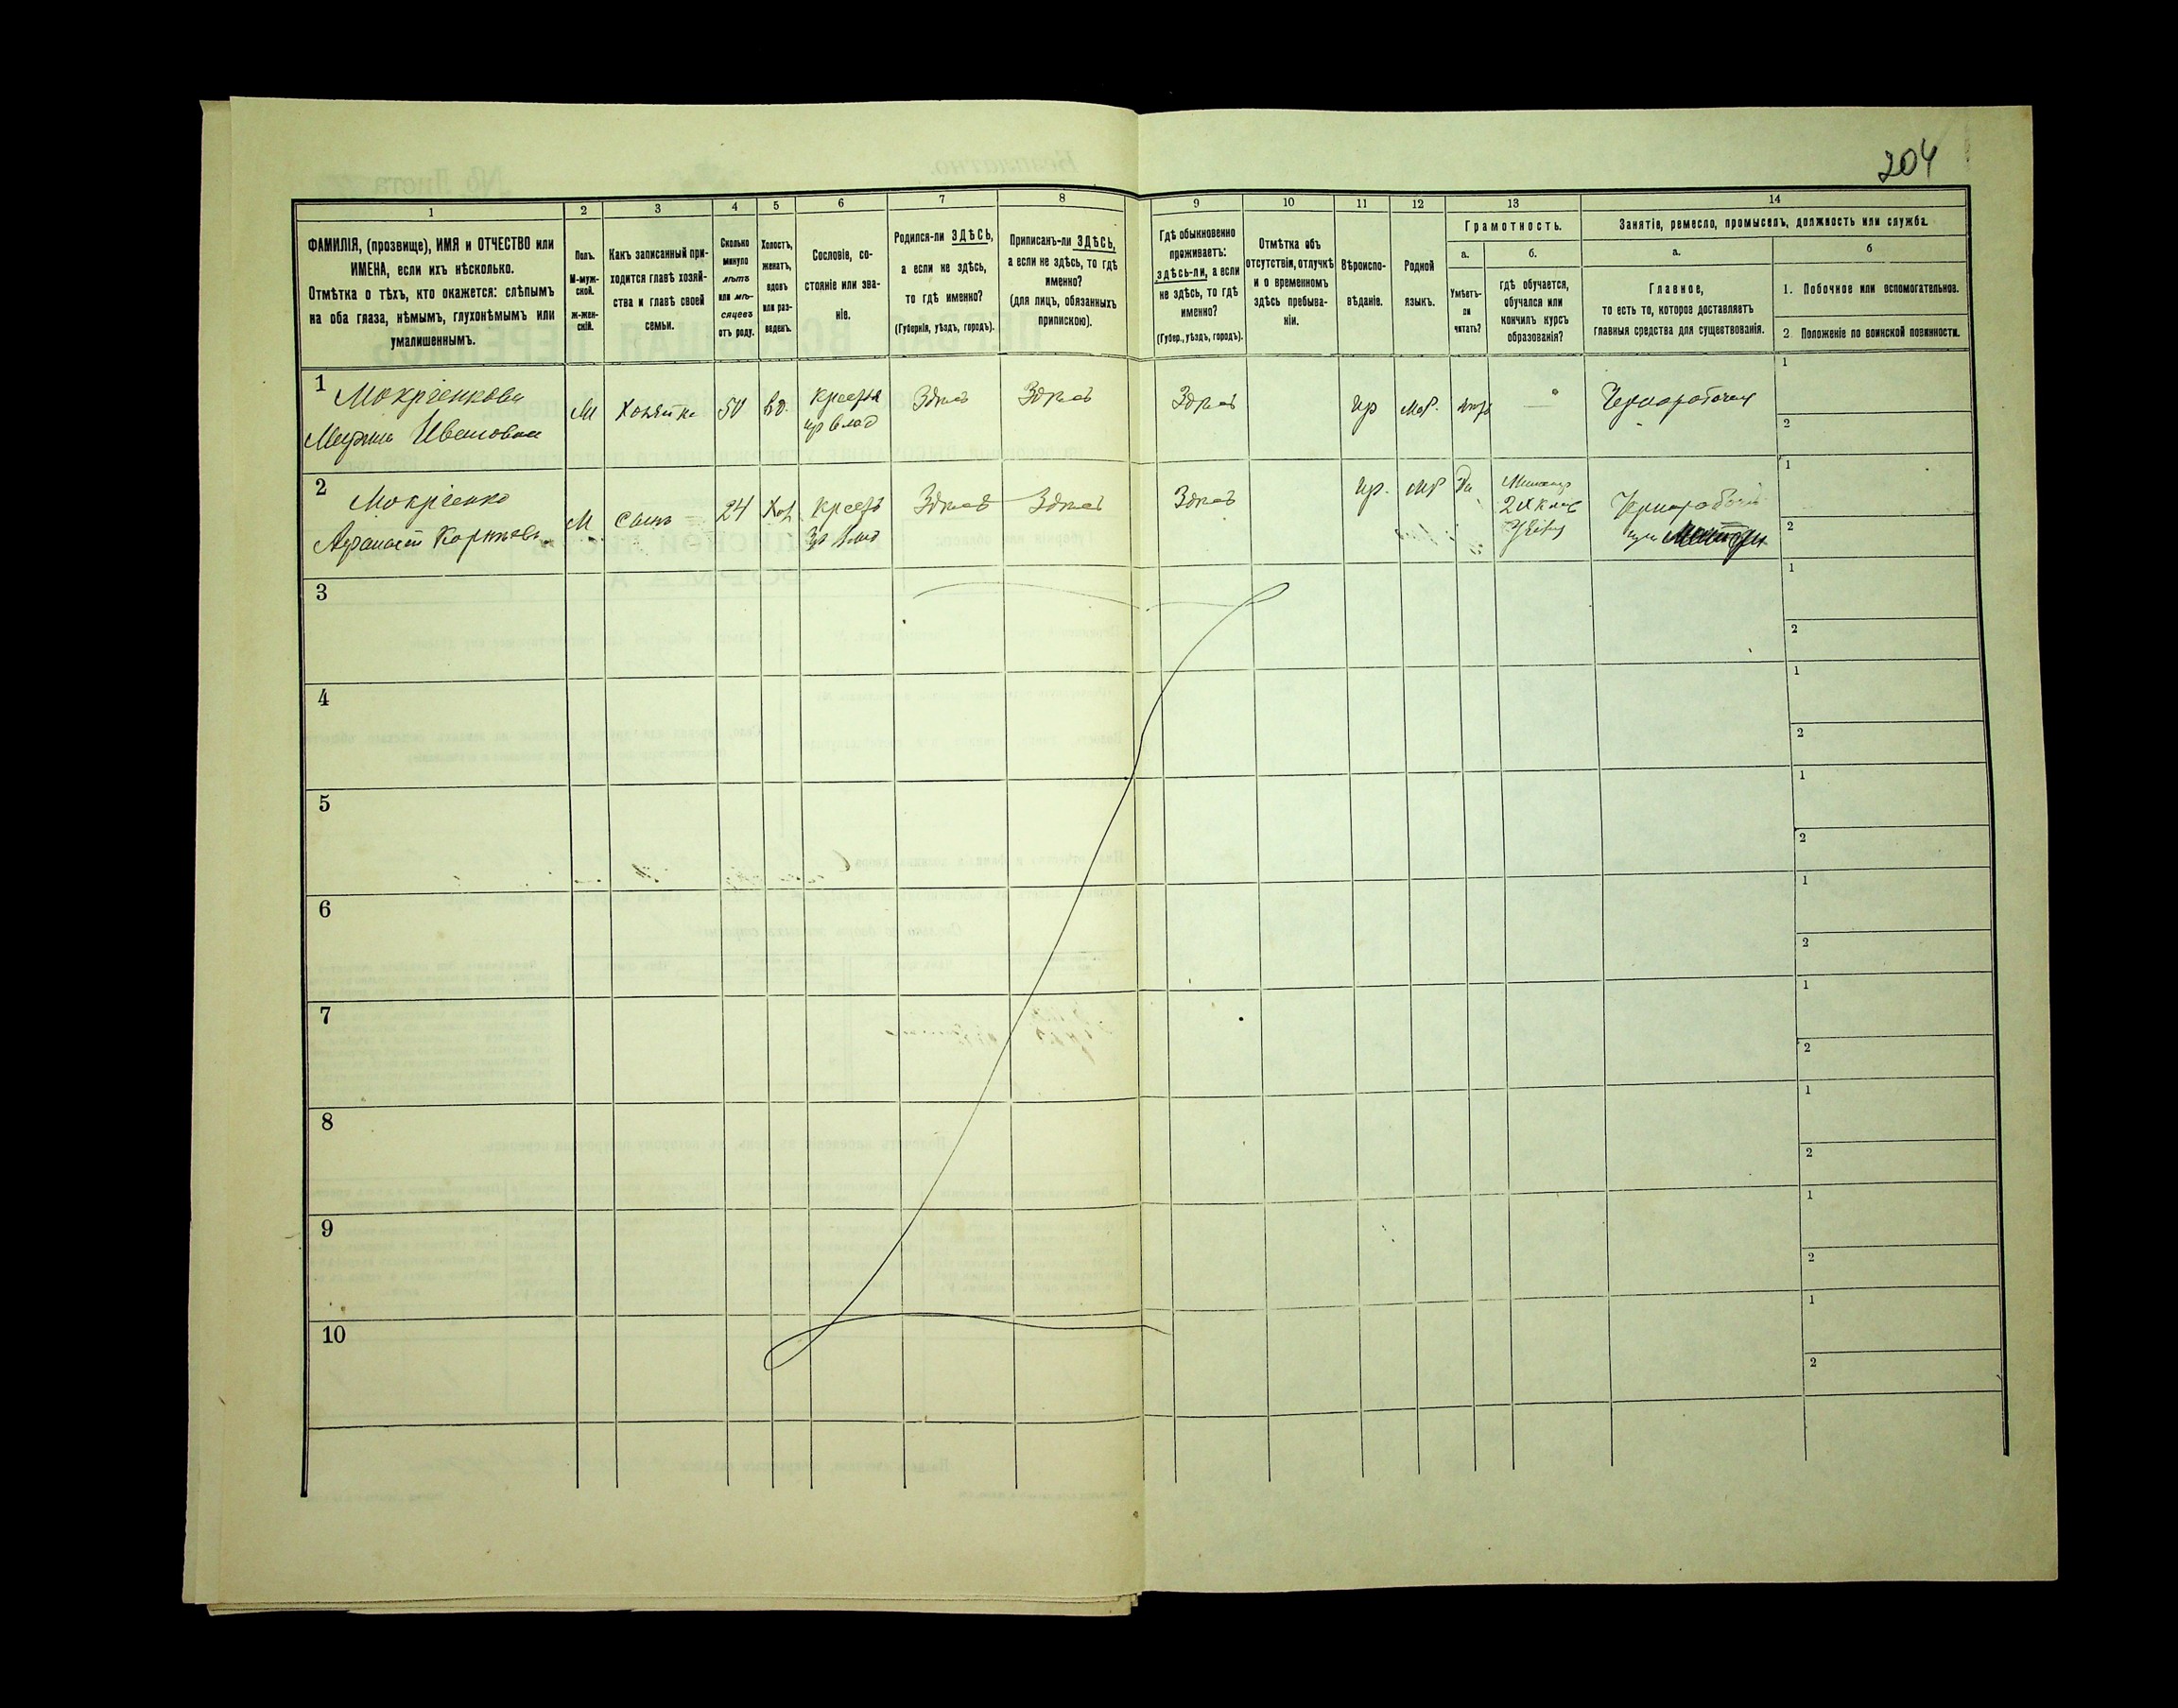 204
1
2
3
4
5
6
7
8
9
10
11
12
13
14
ФАМИЛІЯ, (прозвище), ИМЯ и ОТЧЕСТВО или
ИМЕНА, если ихъ нѣсколько.
Отмѣтка о тѣхъ, кто окажется: слѣпымъ
на оба глаза, нѣмымъ, глухонѣмымъ или
умалишеннымъ.
Полъ.
М-муж-
ской.
ж-жен-
скій.
Какъ записанный при-
ходится главѣ хозяй-
ства и главѣ своей
семьи.
Сколько
минуло
лѣтъ
или мѣ-
сяцевъ
отъ роду.
Холостъ,
женатъ,
вдовъ
или раз-
веденъ.
Сословіе, со-
стояніе или зва-
ніе.
Родился-ли ЗДѢСЬ,
а если не здѣсь,
то гдѣ именно?
(Губернія, уѣздъ, городъ).
Приписанъ-ли ЗДѢСЬ,
а если не здѣсь, то гдѣ
именно?
(для лицъ, обязанныхъ
припискою).
Гдѣ обыкновенно
проживаетъ:
здѣсь-ли, а если
не здѣсь, то гдѣ
именно?
(Губер., уѣздъ, городъ).
Отмѣтка объ
отсутствіи, отлучкѣ
и о временномъ
здѣсь пребыва-
ніи.
Вѣроиспо-
вѣданіе.
Родной
языкъ.
Грамотность.
а.
Умѣетъ-
ли
читать?
б.
гдѣ обучается,
обучался или
кончилъ курсъ
образованія?
Занятіе, ремесло, промыселъ, должность или служба.
а.
Главное,
то есть то, которое доставляетъ
главныя средства для существованія.
б
1. Побочное или вспомогательное.
2. Положеніе по воинской повинности.
1
Мокріенкова
Ивановна
М
Хозяйка
50
вд.
Здѣсь
Здѣсь
Здѣсь
пр
мал.
нѣтъ
—
Чернорабочая
1
2
2
Мокріенко
Афанасій Корнѣевъ
М
Сынъ
24
Хол
Здѣсь
Здѣсь
Здѣсь
пр.
Да
2х клас
Чернорабочій
1
2
3
1
2
4
1
2
5
1
2
6
1
2
7
1
2
8
1
2
9
1
2
10
1
2